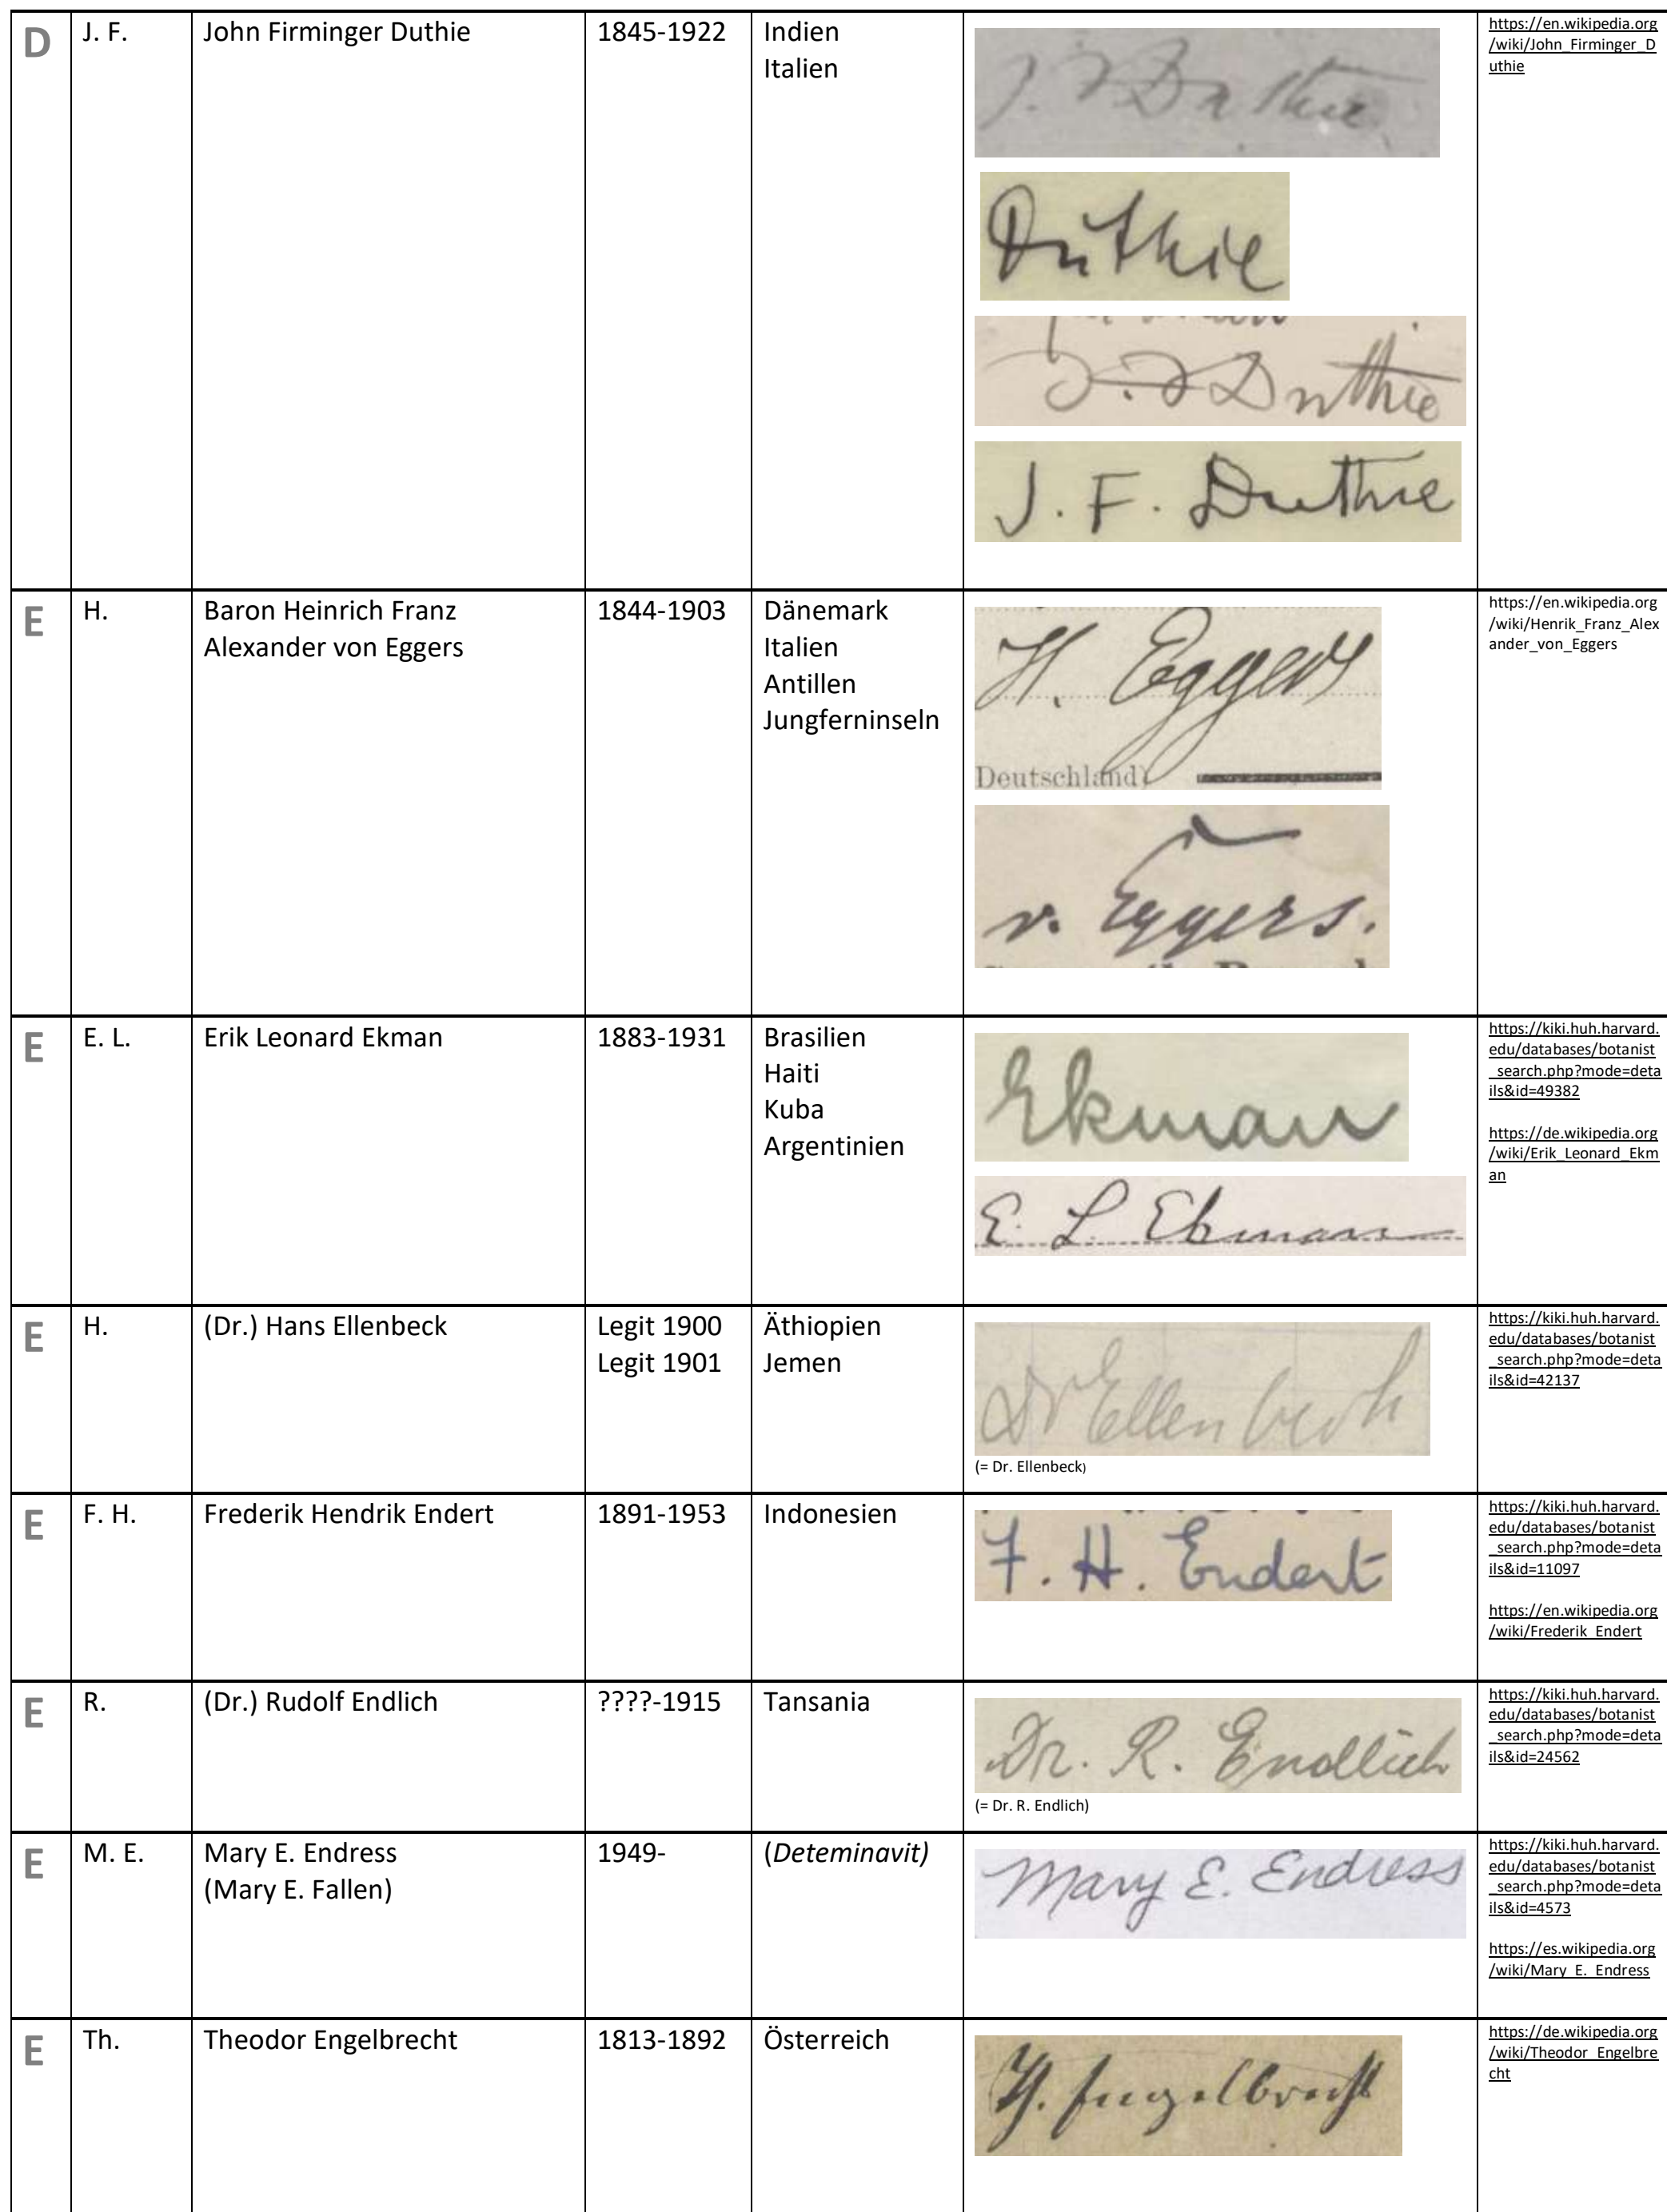 D
J. F.
John Firminger Duthie
1845-1922
Indien
Italien
J. F Duthie
Duthie
J. F Duthie
J. F. Duthie
https://en.wikipedia.org
/wiki/John_Firminger_D
uthie
E
H.
Baron Heinrich Franz
Alexander von Eggers
1844-1903
Dänemark
Italien
Antillen
Jungferninseln
H. Eggers
Deutschland)
v. Eggers.
https://en.wikipedia.org
/wiki/Henrik_Franz_Alex
ander_von_Eggers
E
E. L.
Erik Leonard Ekman
1883-1931
Brasilien
Haiti
Kuba
Argentinien
Ekman
E. L. Ekman
https://kiki.huh.harvard.
edu/databases/botanist
_search.php?mode=deta
ils&id=49382
https://de.wikipedia.org
/wiki/Erik_Leonard_Ekm
an
E
H.
(Dr.) Hans Ellenbeck
Legit 1900
Legit 1901
Äthiopien
Jemen
Dr Ellenbeck
(= Dr. Ellenbeck)
https://kiki.huh.harvard.
edu/databases/botanist
_search.php?mode=deta
ils&id=42137
E
F. H.
Frederik Hendrik Endert
1891-1953
Indonesien
F. H. Endert
https://kiki.huh.harvard.
edu/databases/botanist
_search.php?mode=deta
ils&id=11097
https://en.wikipedia.org
/wiki/Frederik_Endert
E
R.
(Dr.) Rudolf Endlich
????-1915
Tansania
Dr. R. Endlich
(= Dr. R. Endlich)
https://kiki.huh.harvard.
edu/databases/botanist
_search.php?mode=deta
ils&id=24562
E
M. E.
Mary E. Endress
(Mary E. Fallen)
1949-
(Deteminavit)
Mary E. Endress
https://kiki.huh.harvard.
edu/databases/botanist
_search.php?mode=deta
ils&id=4573
https://es.wikipedia.org
/wiki/Mary_E._Endress
E
Th.
Theodor Engelbrecht
1813-1892
Österreich
Th. Engelbrecht
https://de.wikipedia.org
/wiki/Theodor_Engelbre
cht